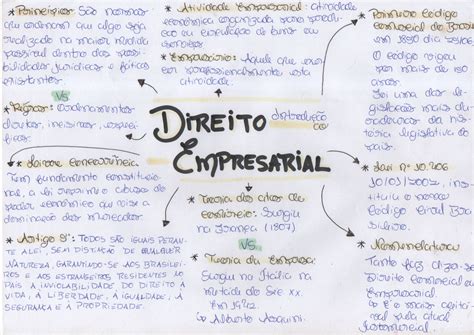 * Princípios: São normas
que ordenam que algo seja
realizado na maior medida
possível dentro das possi-
bilidades jurídicas e fáticas
existentes.
VS
* Regras: Ordenamentos
diretos, incisivos, especí-
ficos.
* Livre concorrência:
Tem fundamento constitucio-
nal, a lei reprime o abuso de
poder econômico que vise a
dominação dos mercados.
* Artigo 5º: TODOS SÃO IGUAIS PERAN-
TE A LEI, SEM DISTINÇÃO DE QUALQUER
NATUREZA, GARANTINDO-SE AOS BRASILEI-
ROS E AOS ESTRANGEIROS RESIDENTES NO
PAÍS A INVIOLABILIDADE DO DIREITO À
VIDA, À LIBERDADE, À IGUALDADE, À
SEGURANÇA E À PROPRIEDADE.
* Atividade Empresarial: atividade
econômica organizada para produção
ou circulação de bens ou
serviços.
* Empresário: Aquele que exer-
ce profissionalmente esta
atividade.
DIREITO
Introdução
EMPRESARIAL
* Teoria dos atos de
comércio: Surgiu
na França (1807)
VS.
* Teoria da Empresa:
Surgiu na Itália na
metade do Séc XX.
Em 1942.
↳ Alberto Asquini.
* Primeiro Código
Comercial do Brasil
em 1850
O código vigeu
por mais de 150
anos.
Foi uma das le-
gislações mais du-
radouras da his-
tória legislativa do
país.
* Lei nº 10.406
10/01/2002, ins-
tituiu o
Código Civil Bra-
sileiro.
* Nomenclatura:
Tanto faz dizer-se
Direito Comercial ou
Empresarial